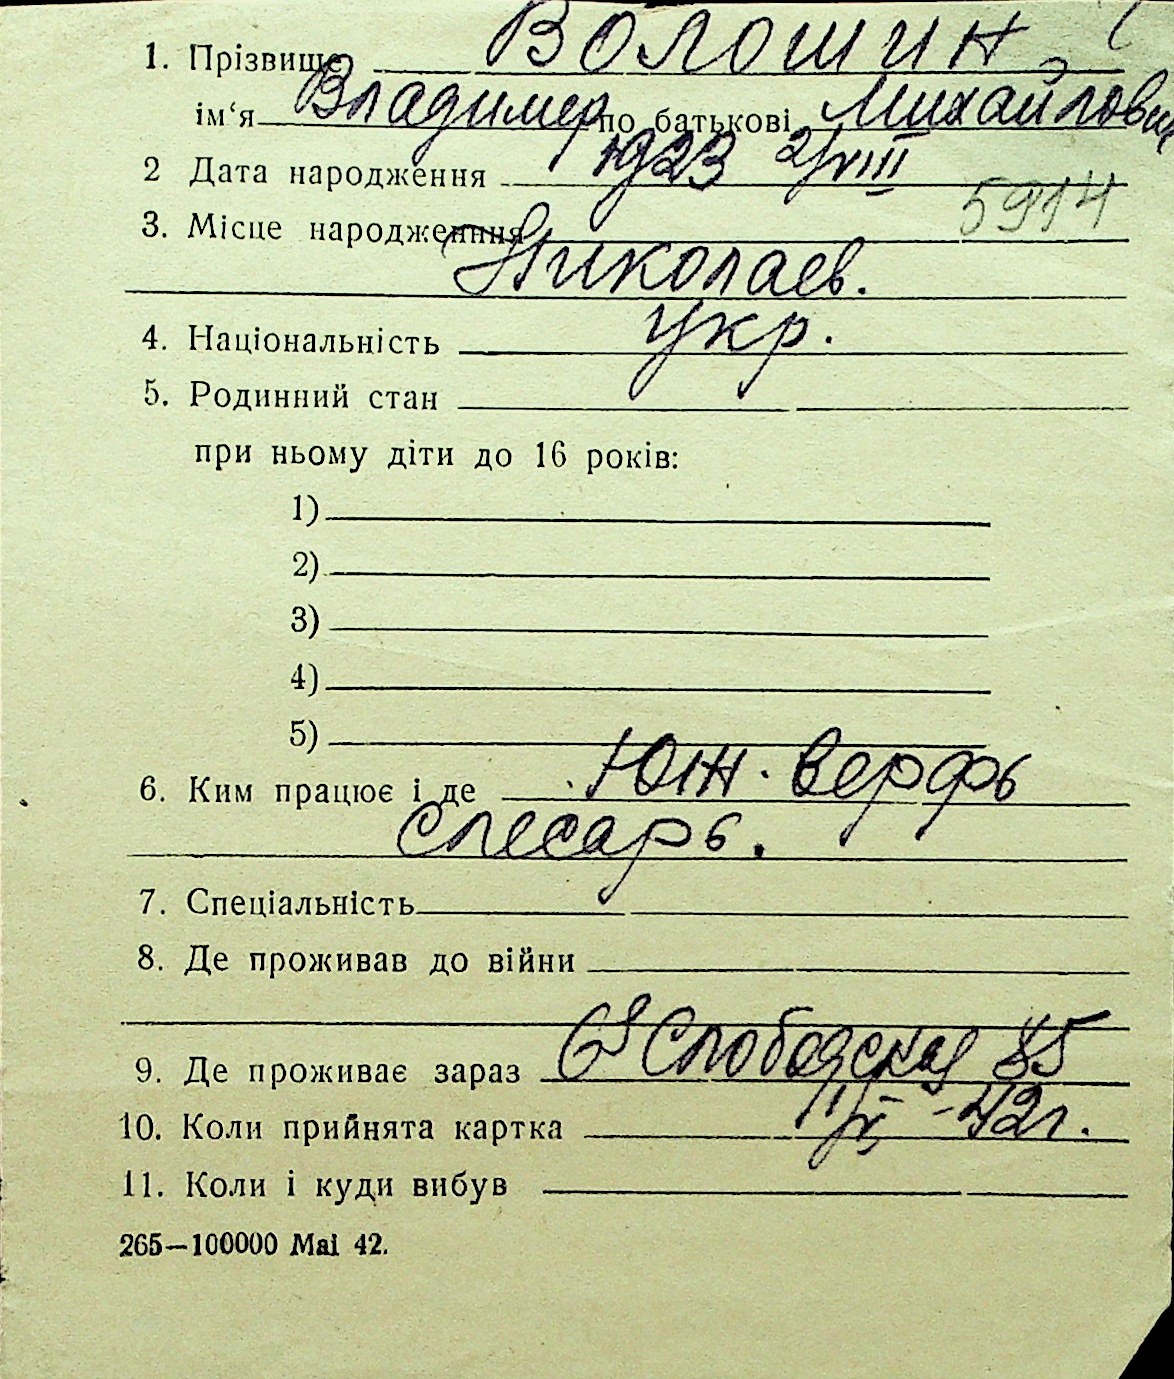 1. Прізвище Волошин
ім‘я Владимер по батькові Михайлович
2 Дата народження 1923 2/VIII
5914
3. Місце народженння
Николаев.
4. Національність укр.
5. Родинний стан
при ньому діти до 16 років:
1)
2)
3)
4)
5)
6. Ким працює і де Юж. верфь
слесарь.
7. Спеціальність
8. Де проживав до війни
9. Де проживає зараз Слободская 85
10. Коли прийнята картка -42г.
11. Коли і куди вибув
265—100000 Mai 42.